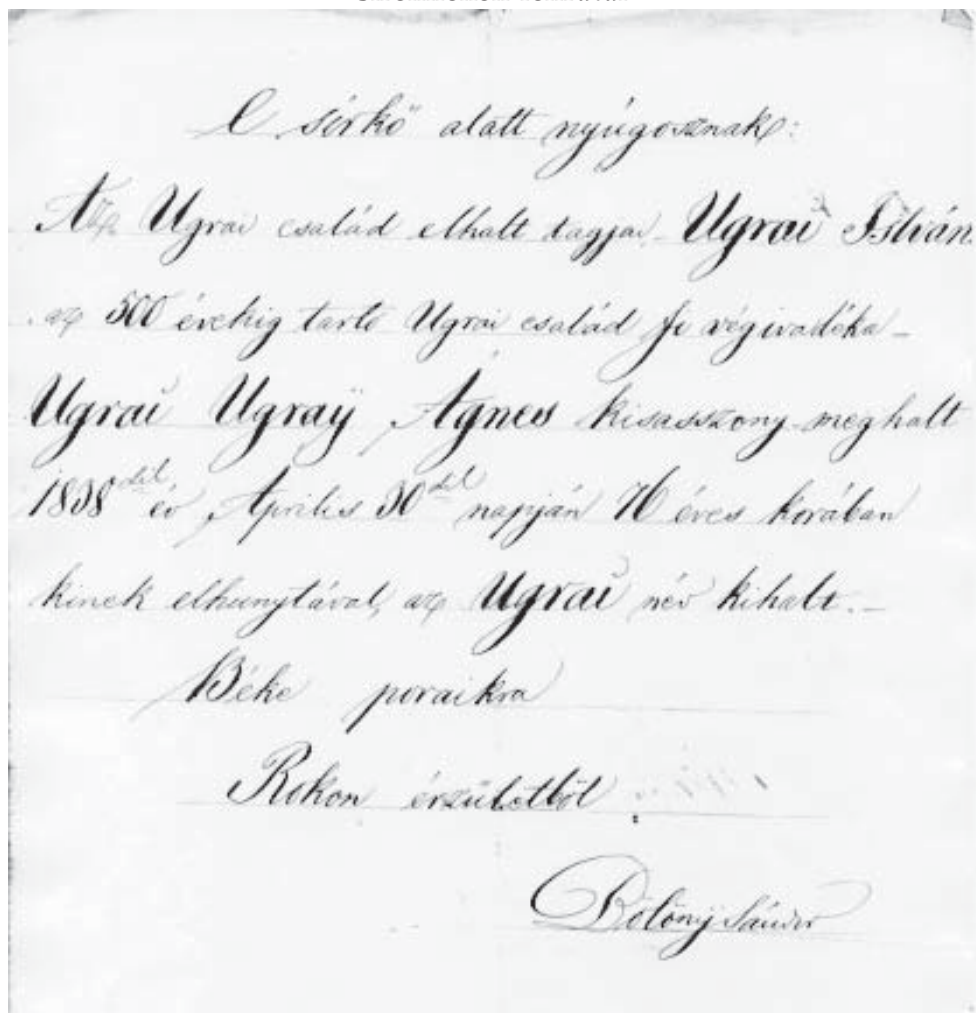 E sírkő alatt nyúgosznak:
Az Ugrai család elhalt tagjai Ugrai István
az 500 évekig tartó Ugrai család fi végivadéka –
Ugrai Ugraÿ Ágnes kisasszony meghalt
1838dik év Április 30dik napján 76 éves korában
kinek elhunytával, az Ugrai név kihalt. –
Béke poraikra
Rokon érzületből
Bölönÿ Sándor